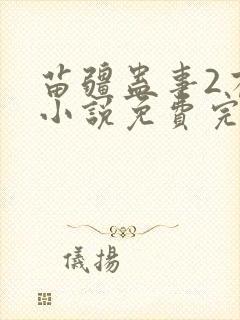 苗疆蛊事2
小說免費完
儀揚